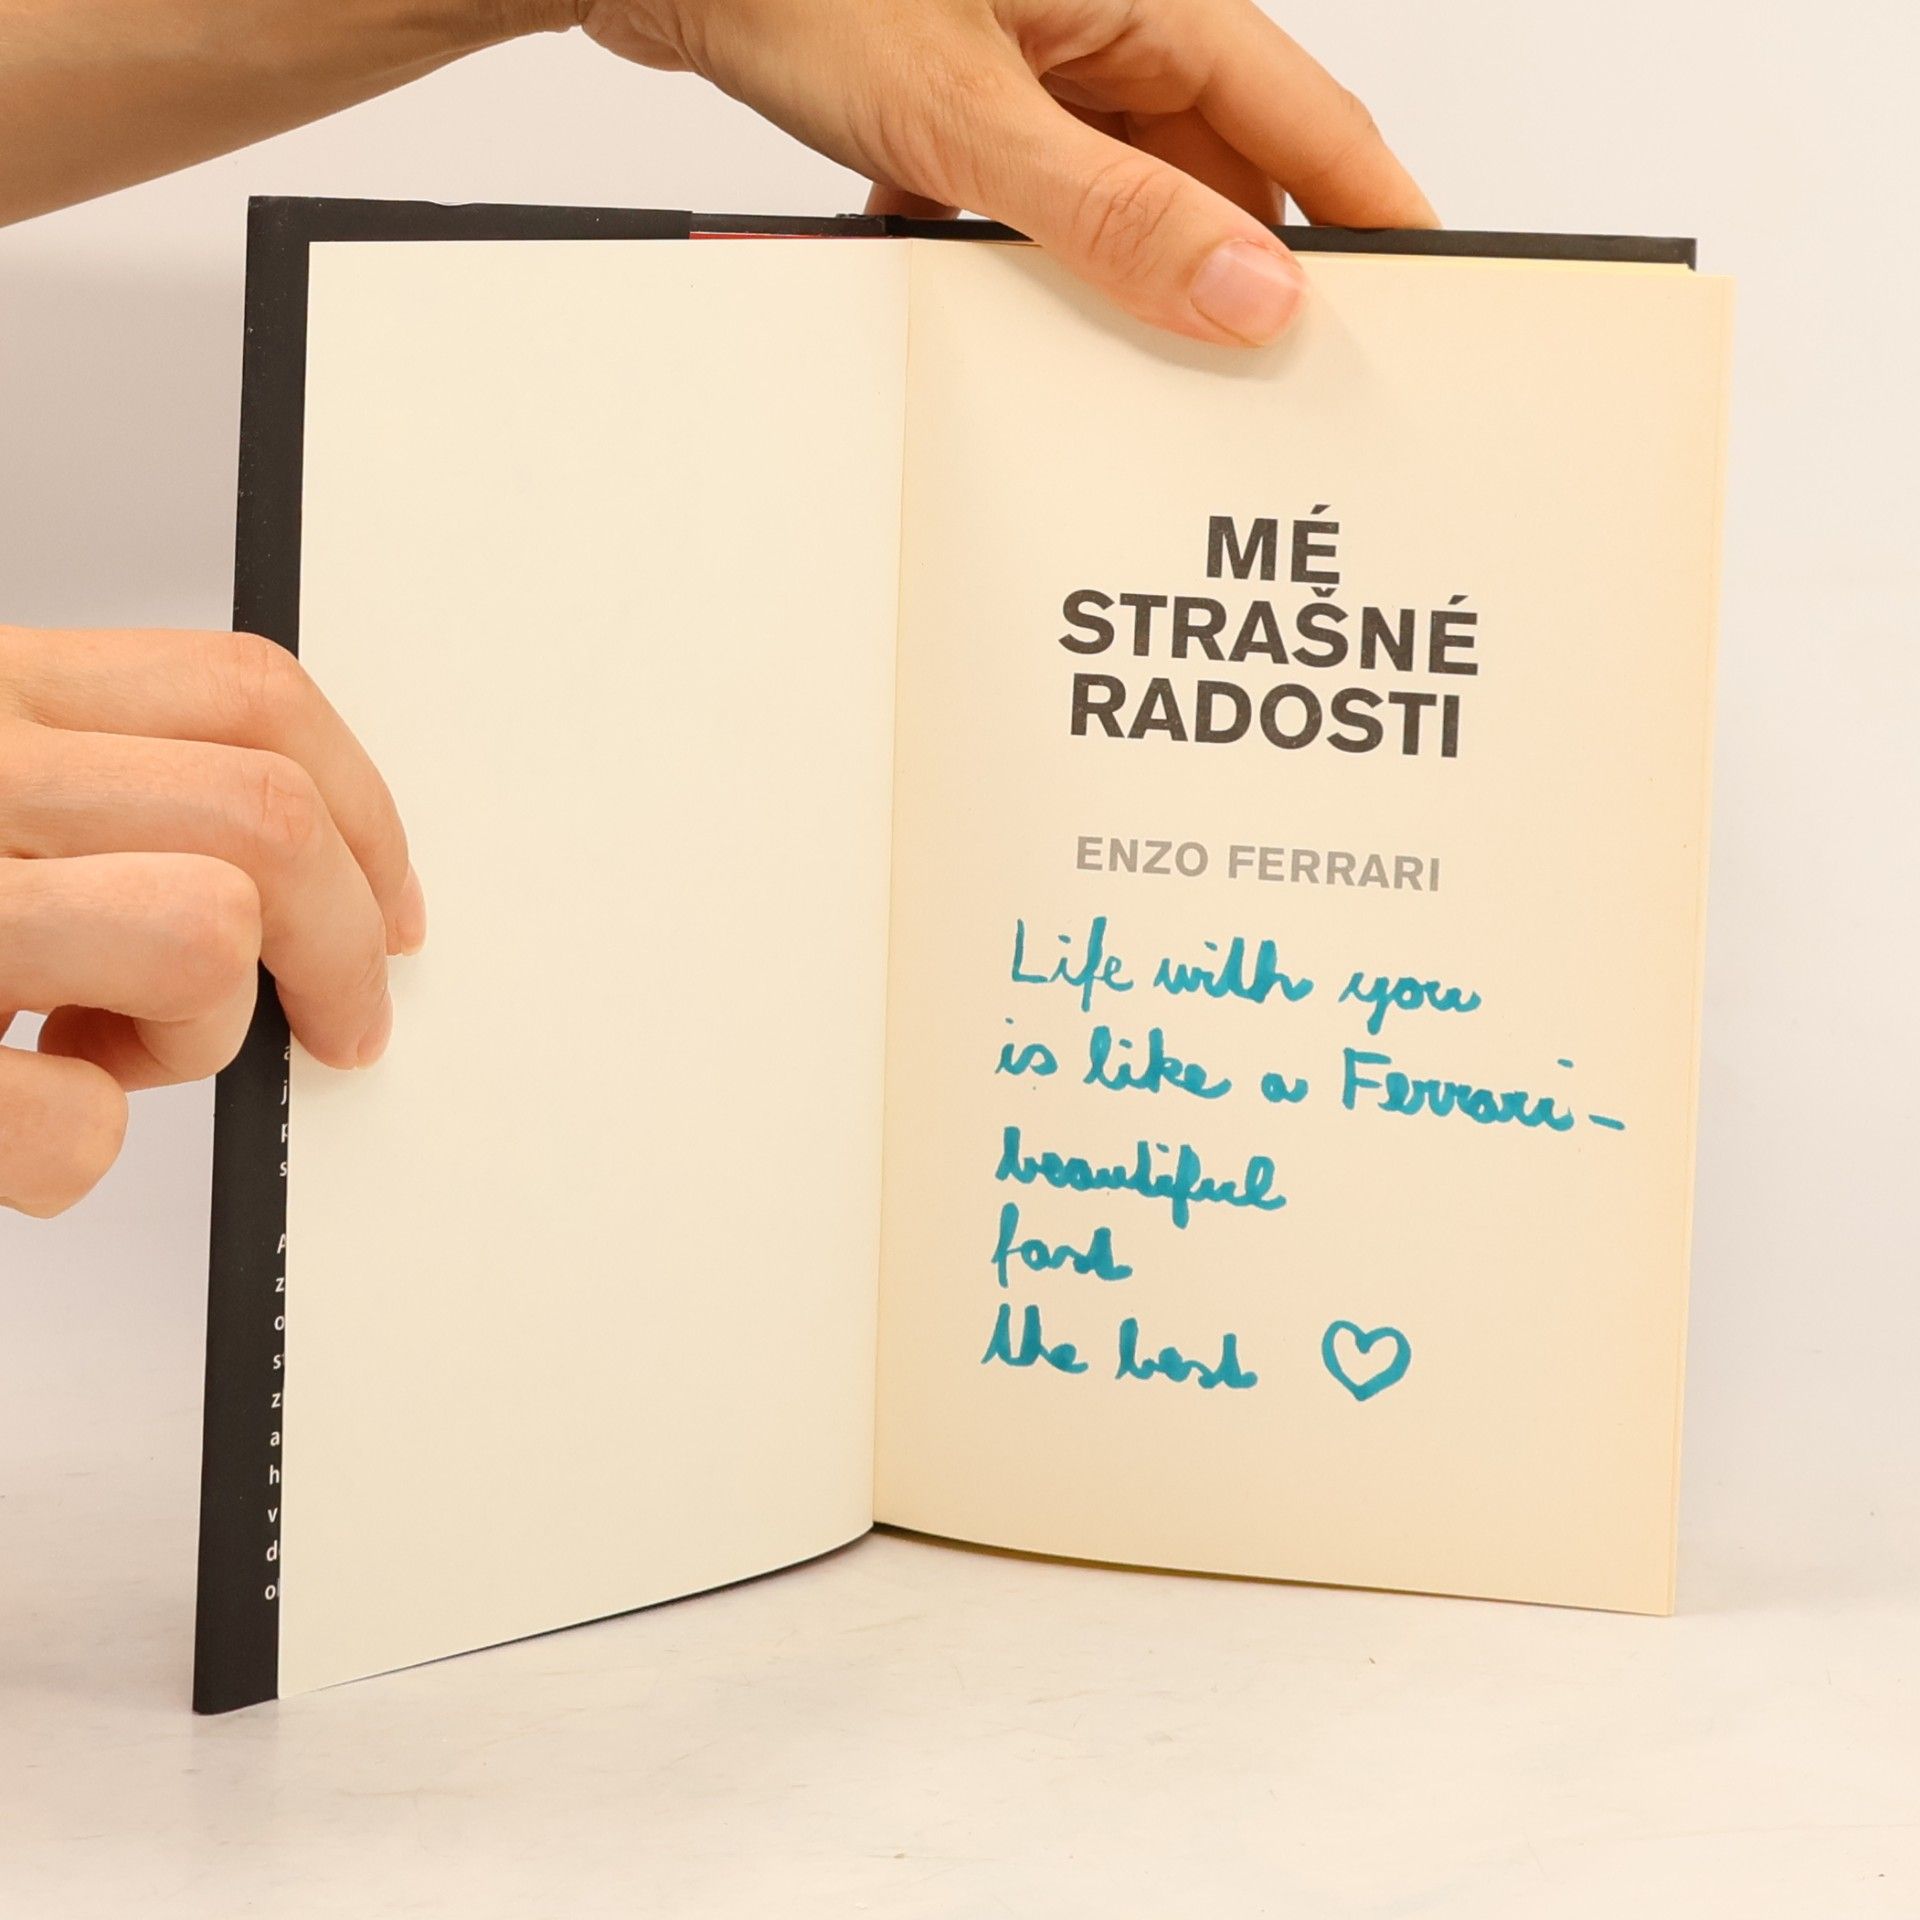 MÉ
STRAŠNÉ
RADOSTI
ENZO FERRARI
Life with you
is like a Ferrari -
beautiful
fast
the best ♡
a
j
p
s
A
z
o
s
z
a
h
v
d
o